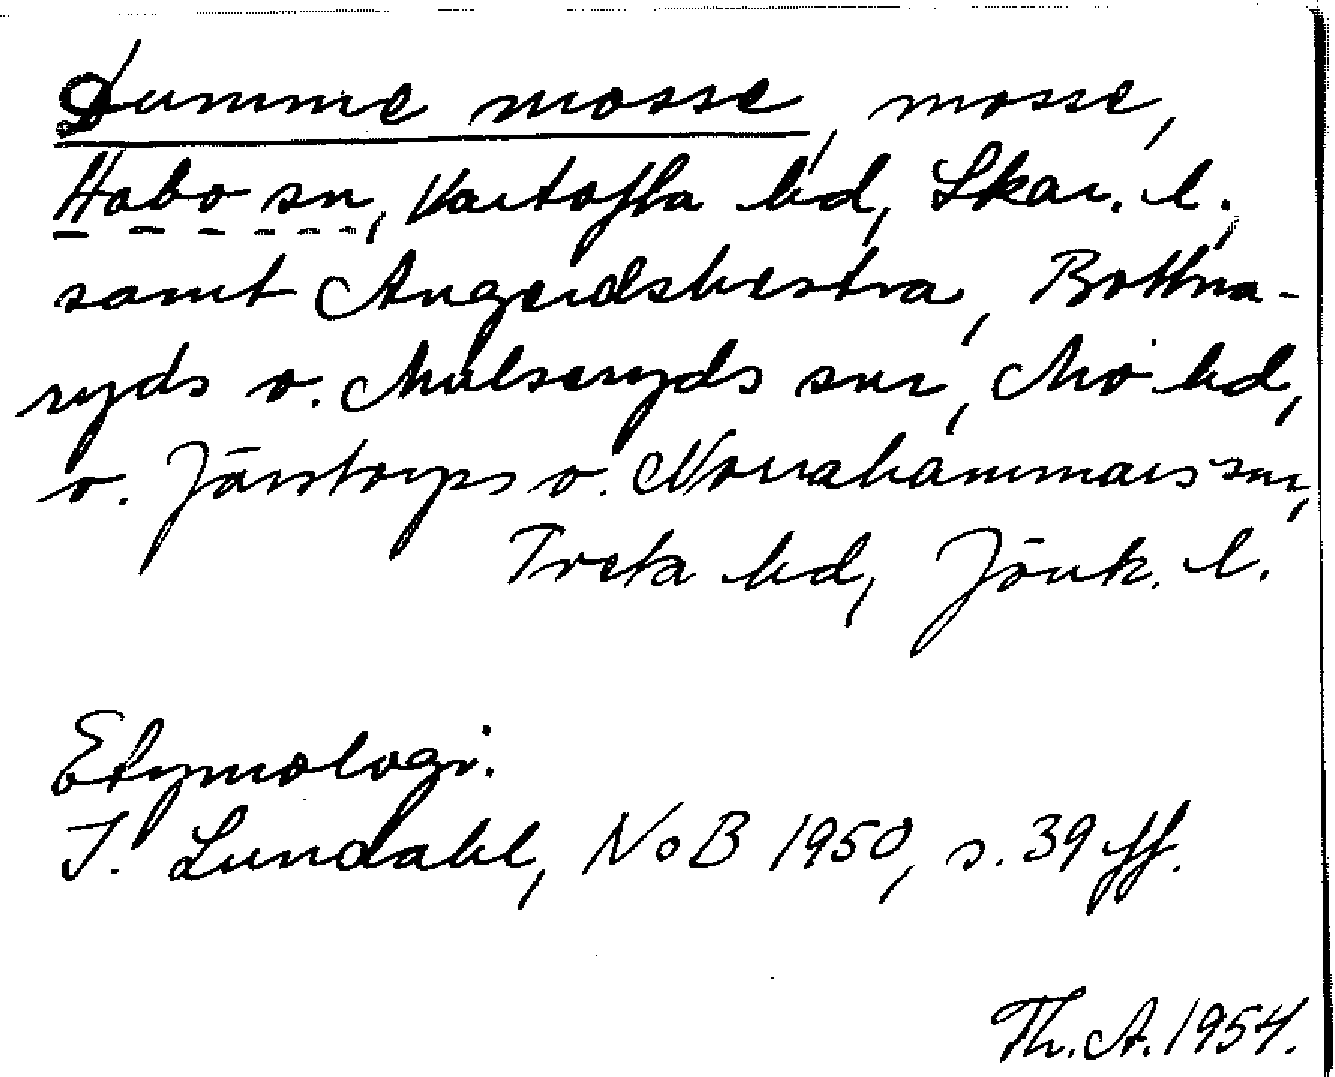 Dumme mosse, mosse,
Habo sn, Vartofta hd, Skar. l.,
samt Angerdshestra, Bottna-
ryds o. Mulseryds snr, Mo hd,
o. Järstorps o. Norrahammars snr,
Tveta hd, Jönk. l.
Etymologi.
I. Lundahl, NoB 1950, s. 39 ff.
Th. A. 1954.